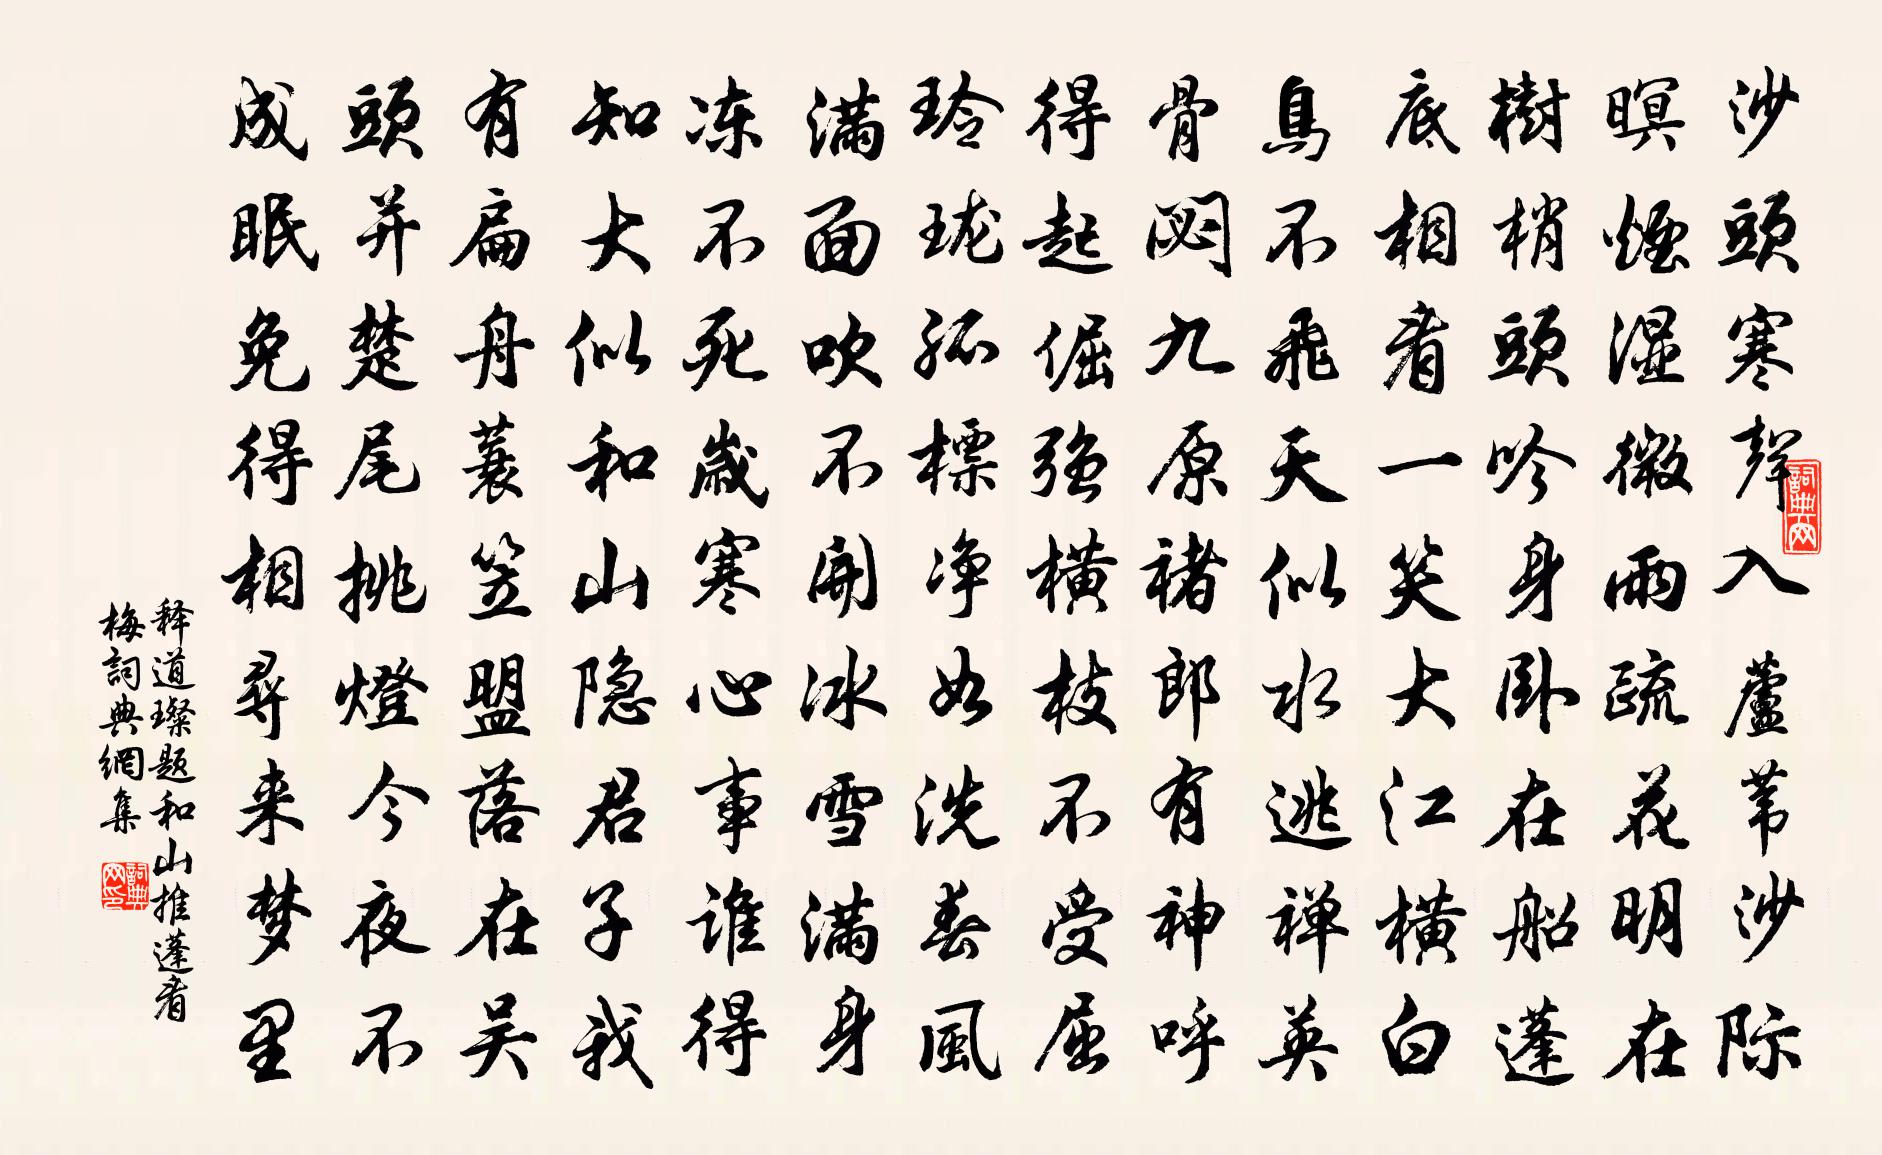 沙頭寒聲入蘆苇沙际
暝煙湿微雨疏花明在
樹梢頭吟身卧在船蓬
底相看一笑大江横白
鳥不飛天似水逃禅英
骨閟九原褚郎有神呼
得起倔强横枝不受屈
玲珑孤標净如洗春風
满面吹不開冰雪满身
冻不死歲寒心事谁得
知大似和山隐君子我
有扁舟蓑笠盟落在吴
頭并楚尾挑燈今夜不
成眠免得相尋来梦里
释道璨题和山推蓬看
梅詞典網集
詞典网
詞典网印